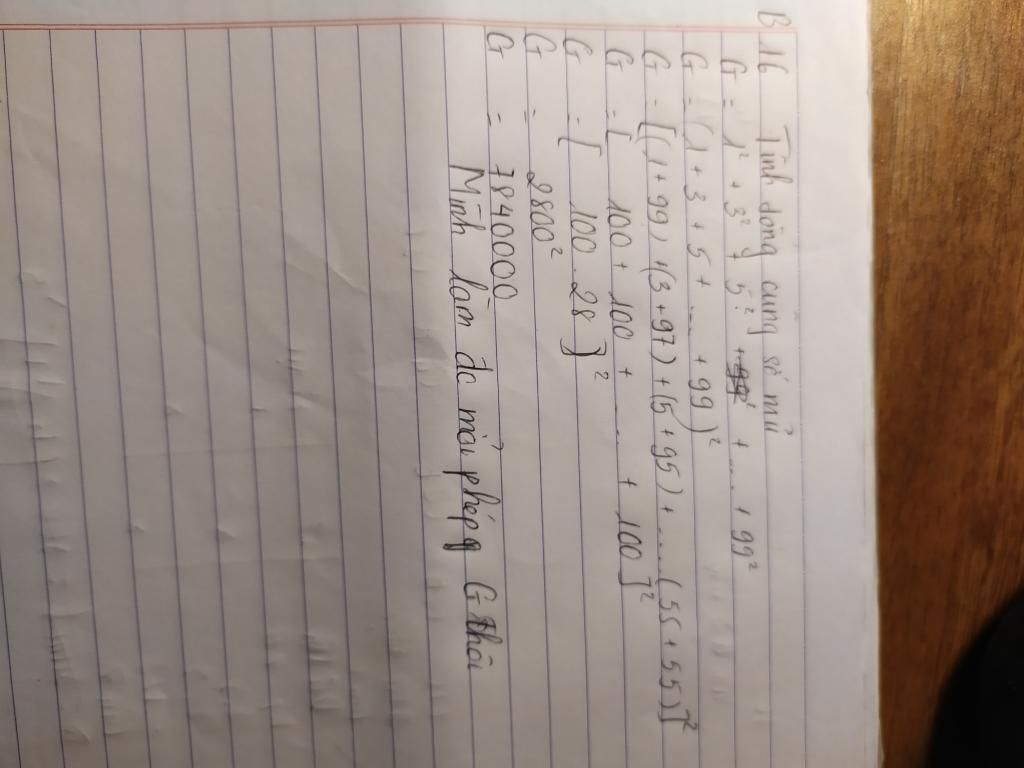 B 16 Tính dãy cùng số mũ
G = 1² + 3² + 5² + ... + 99²
G = (1 + 3 + 5 + ... + 99)²
G = [(1 + 99) + (3 + 97) + (5 + 95) + ....(55 + 55)]²
G = [ 100 + 100 + ..... + 100]²
G = [ 100 . 28 ]²
G = 2800²
G = 7840000
Mình làm đc mỗi phép G thôi